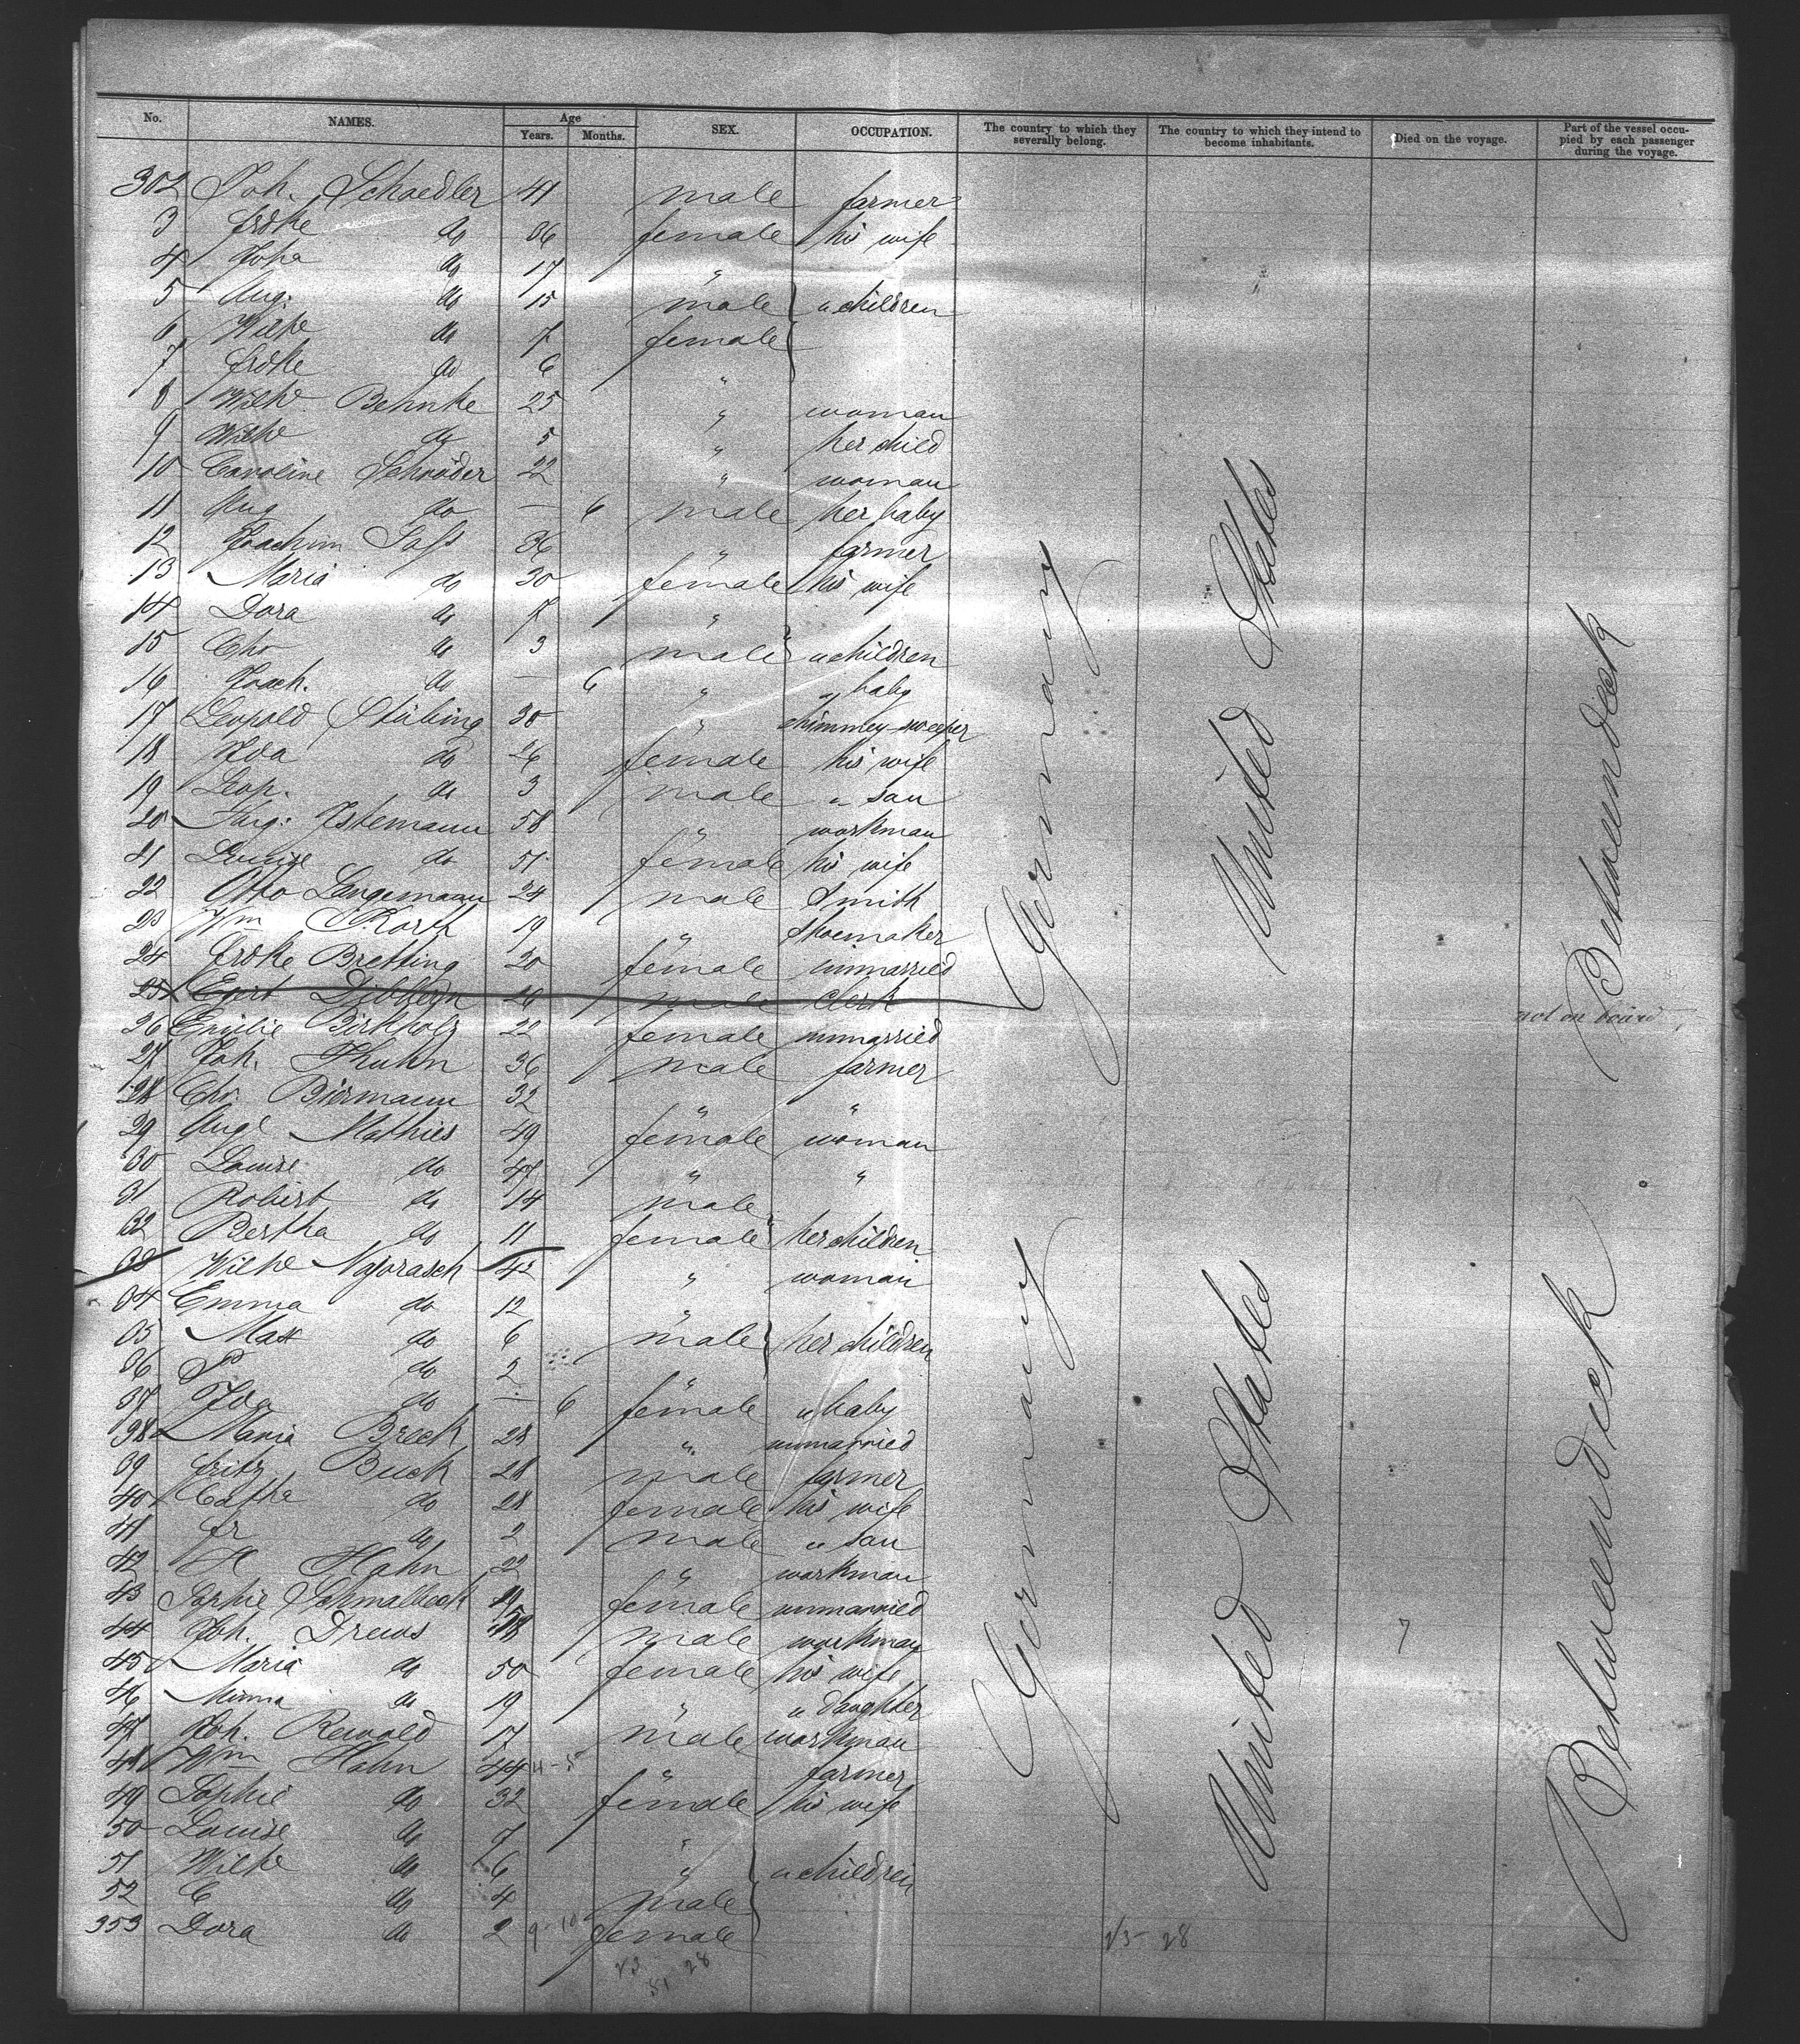 No. NAMES. Age Years. Months. SEX. OCCUPATION. The country to which they severally belong. The country to which they intend to become inhabitants. Died on the voyage. Part of the vessel occupied by each passenger during the voyage.
302 Joh. Schaedler 41 male farmer
3 Frdke do 36 female his wife
4 Joha do 17 "
5 Aug. do 15 male " children
6 Wilhe do 7 female
7 Frdke do 6 "
8 Wilhe Behnke 25 " woman
9 Wilhe do 5 " her child
10 Caroline Schröder 22 " woman
11 Aug do — 6 male her baby
12 Joachim Sass 36 " farmer
13 Maria do 30 female his wife
14 Dora do 7 "
15 Chr do 3 male " children
16 Joach. do — 6 " " baby
17 Leopold Stübing 30 " chimney-sweeper
18 Ida do 26 female his wife
19 Leop. do 3 male " son
20 Aug. 58 " workman
21 Louise do 51 female his wife
22 Otto Langemann 24 male Smith
23 Wm Korth 19 " Shoemaker
24 Frdke Bretting 20 female unmarried
25 26 male clerk not on board
26 Emilie Birkholz 22 female unmarried
27 Joh. Kuhn 36 male farmer
28 Chr. Biermann 32 " "
29 Auge Mathies 49 female woman
30 Louise do 47 " "
31 Robert do 14 male
32 Bertha do 11 female her children
33 Wilhe 42 " woman
34 Emma do 12 "
35 Max do 6 male her children
36 P do 2 "
37 Ida do — 6 female " baby
38 Maria Breck 28 " unmarried
39 Fritz Buck 28 male farmer
40 Catha do 28 female his wife
41 Fr do 2 male " son
42 H Hahn 22 " workman
43 Sophie Schmalbeck female unmarried
44 Joh. Drews male workman
45 Maria do 50 female his wife
46 Minna do 19 " " daughter
47 Joh. Rewold 17 male workman
48 Wm Hahn 44 " farmer
49 Sophie do 32 female his wife
50 Louise do 7 "
51 Wilhe do 6 " " children
52 C do 4 male
353 Dora do 2 9-10 female
Germany
United States
Betweendeck
Germany
United States
Betweendeck
7